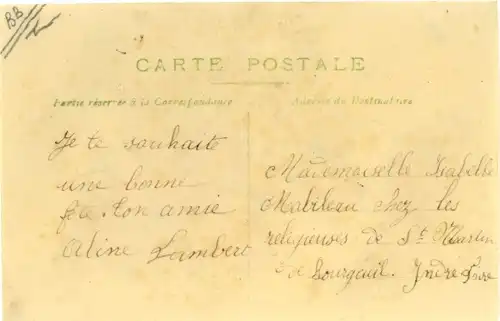 BB
CARTE POSTALE
Partie réservée à la Correspondance
Adresse du Destinataire
Je te souhaite
une bonne
fête Ton amie
Aline Lambert
Mademoiselle Isabelle
Mabileau chez les
religieuses de St Martin
de Bourgueil. Indre Loire